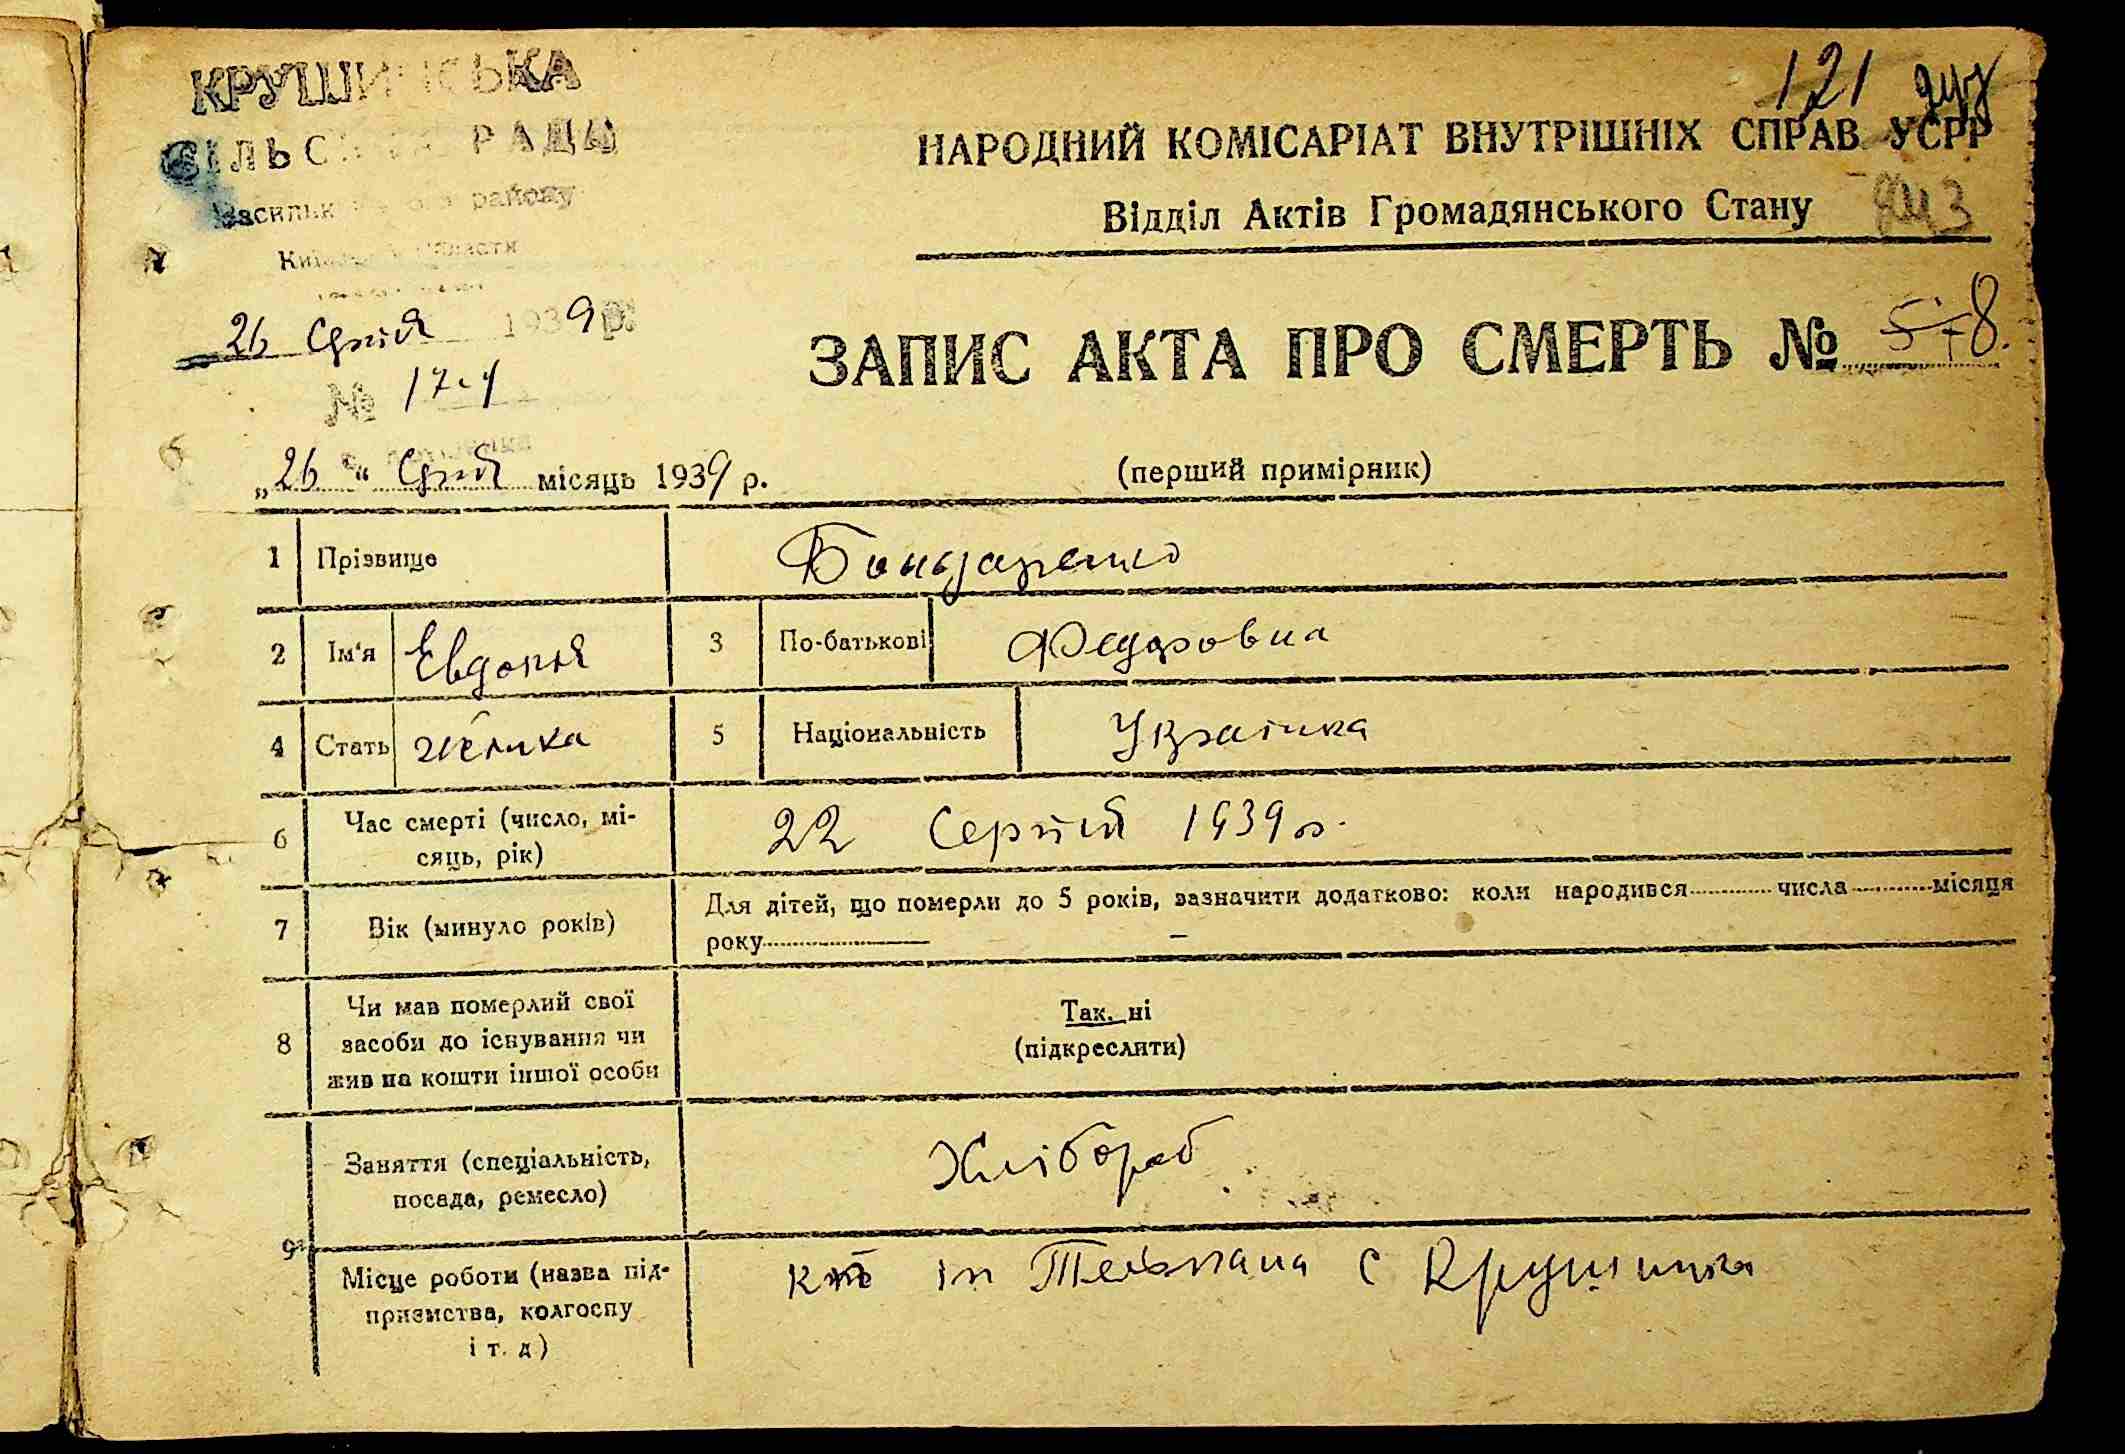 КРУШИНСЬКА
СІЛЬСЬКА РАДА
Васильківського району
Київської области
26 Серпня 1939 р.
№ 17-1
121
НАРОДНИЙ КОМІСАРІАТ ВНУТРІШНІХ СПРАВ УСРР
Відділ Актів Громадянського Стану
ЗАПИС АКТА ПРО СМЕРТЬ № 578.
„26“ Серпня місяць 1939 р.
(перший примірник)
1 Прізвище Бондаренко
2 Ім'я Евдокія 3 По-батькові Федоровна
4 Стать жінка 5 Національність Українка
6 Час смерті (число, мі-
сяць, рік) 22 Серпня 1939 р.
7 Вік (минуло років) Для дітей, що померли до 5 років, зазначити додатково: коли народився числа місяця
року —
8 Чи мав померлий свої
засоби до існування чи
жив на кошти іншої особи
Так. ні
(підкреслити)
9 Заняття (спеціальність,
посада, ремесло) Хлібороб
Місце роботи (назва під-
приємства, колгоспу
і т. д)
ім Тельмана с Крушинка